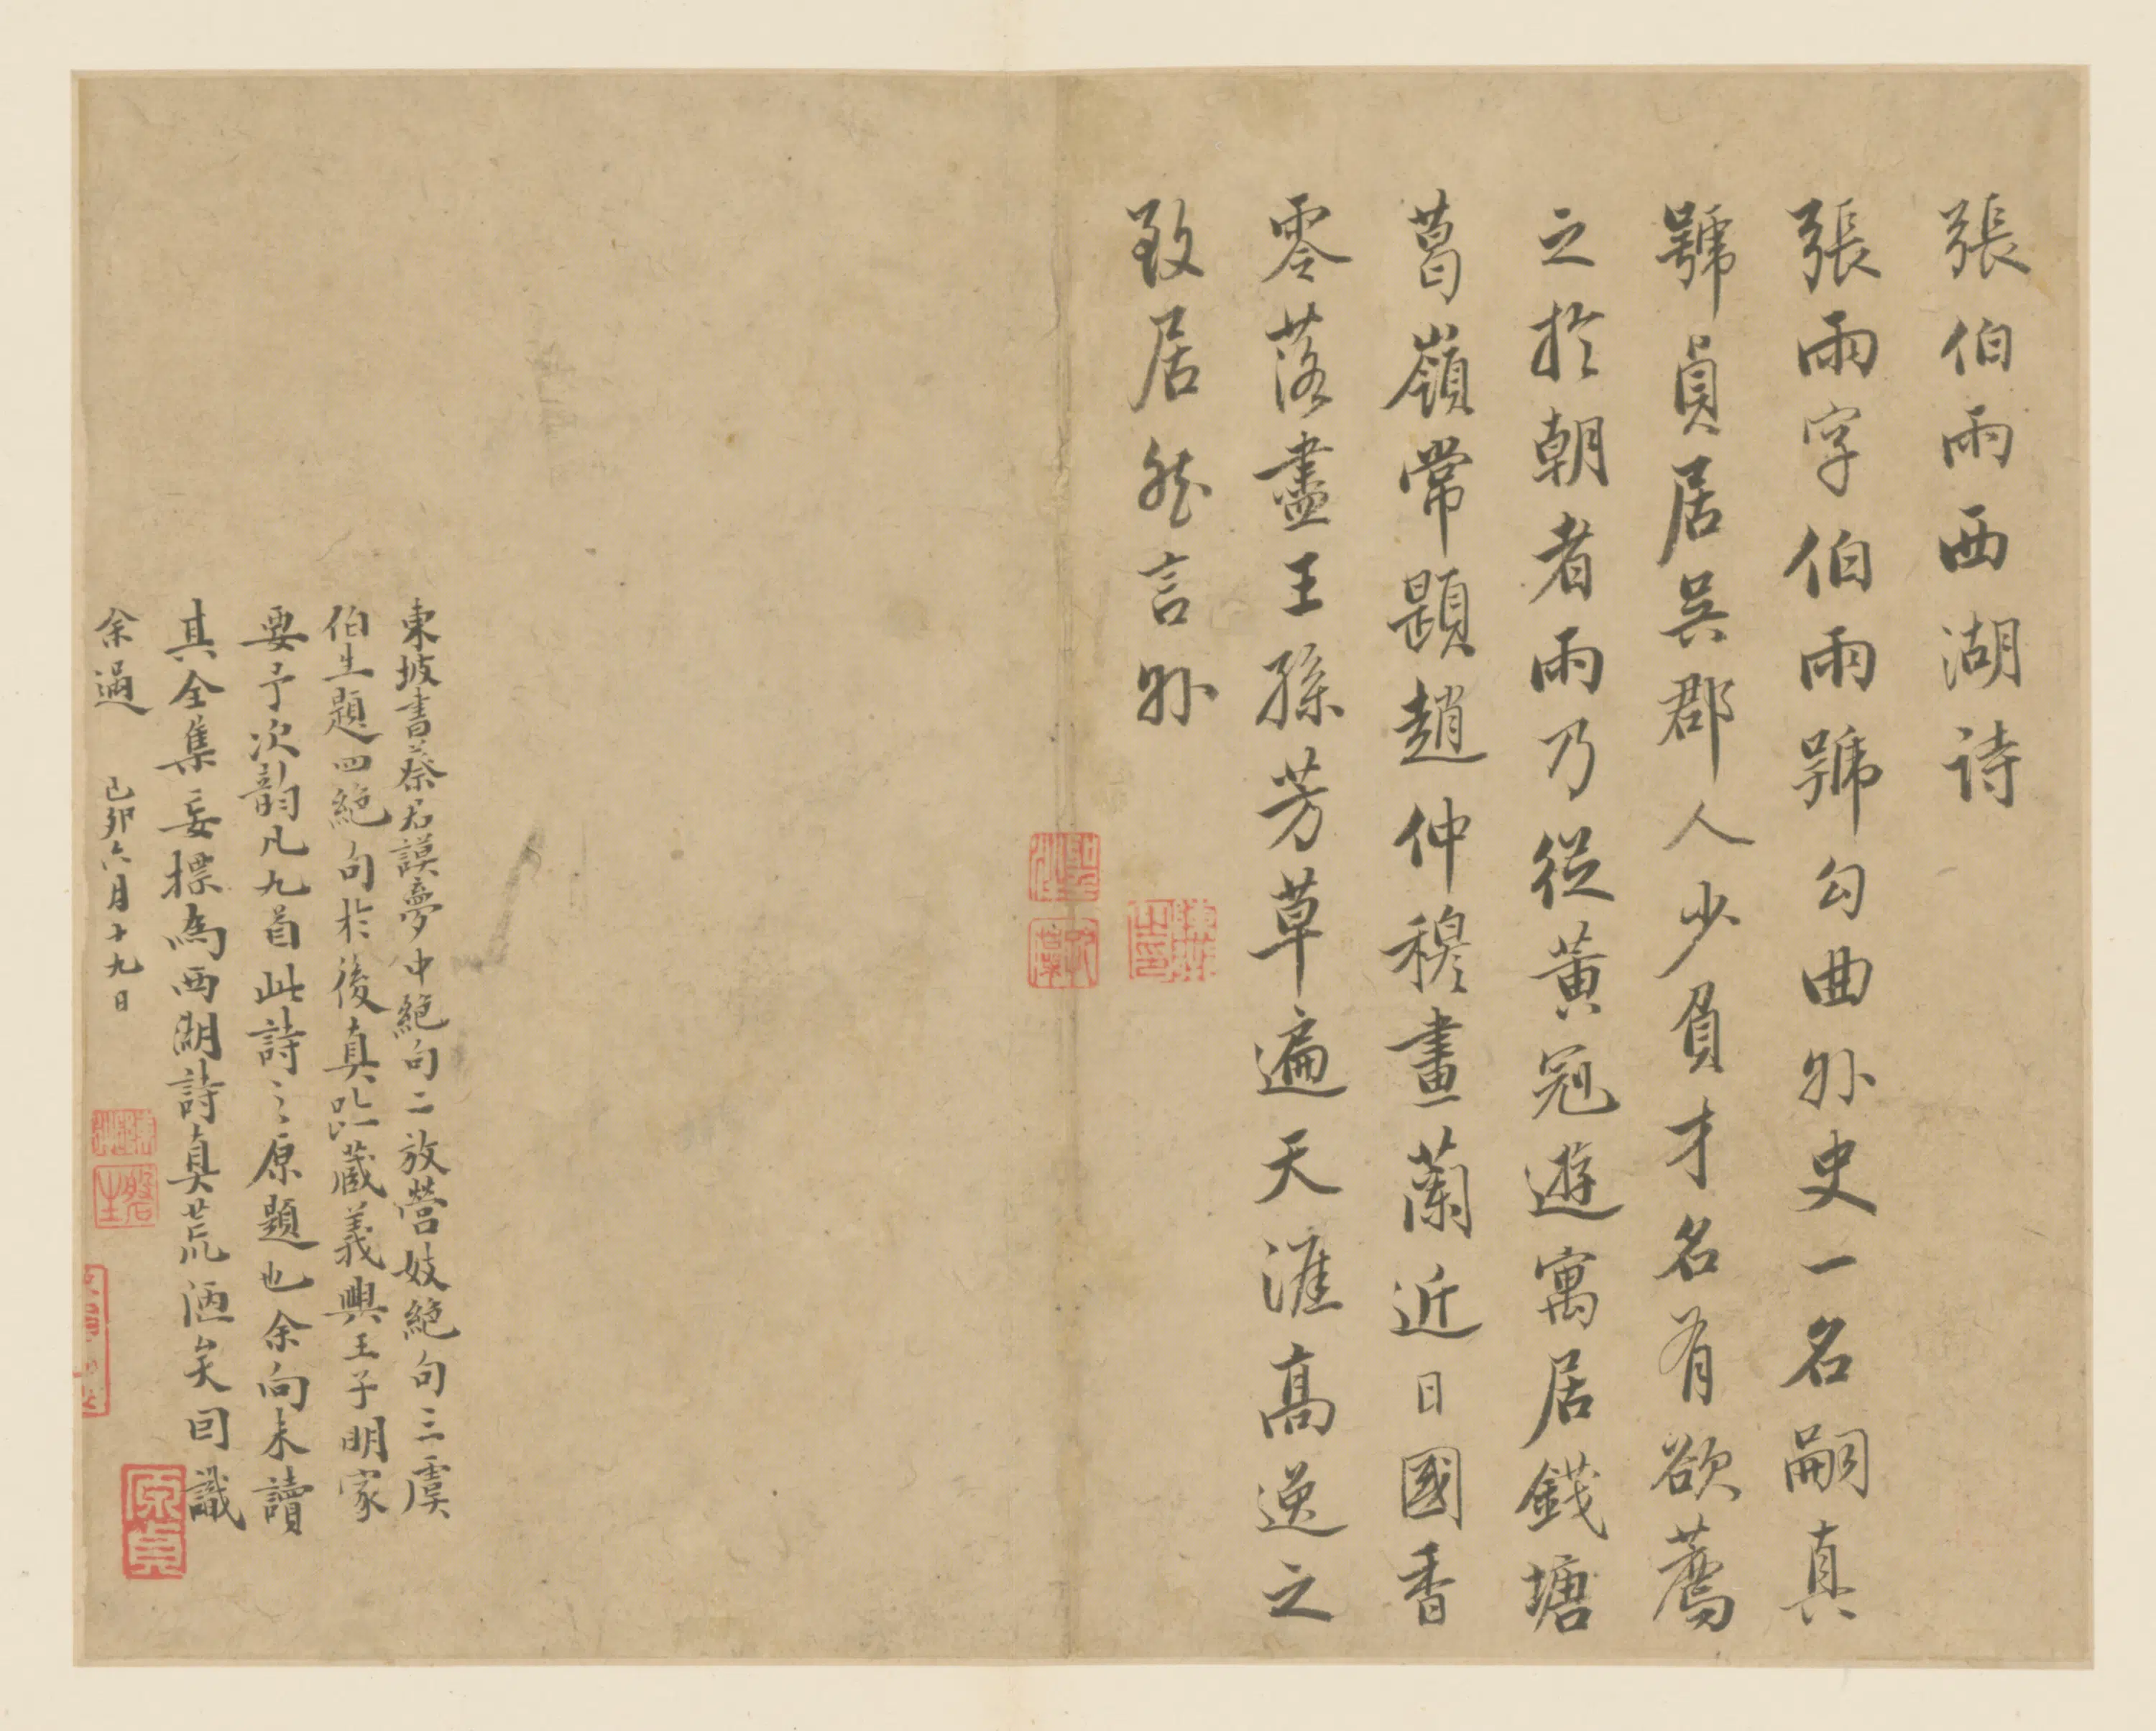 張伯雨西湖詩
張雨字伯雨號勾曲外史一名嗣真
號貞居吳郡人少負才名有欲薦
之於朝者雨乃從黃冠遊寓居錢塘
葛嶺常題趙仲穆畫蘭近日國香
零落盡王孫芳草遍天涯高逸之
致居然言外
東坡書蔡君謨夢中絕句二放營妓絕句三虞
伯生題四絕句於後真跡藏義興王子明家
要予次韵凡九首此詩之原題也余向未讀
其全集妄標為西湖詩真荒陋矣因識
余過 己卯六月十九日